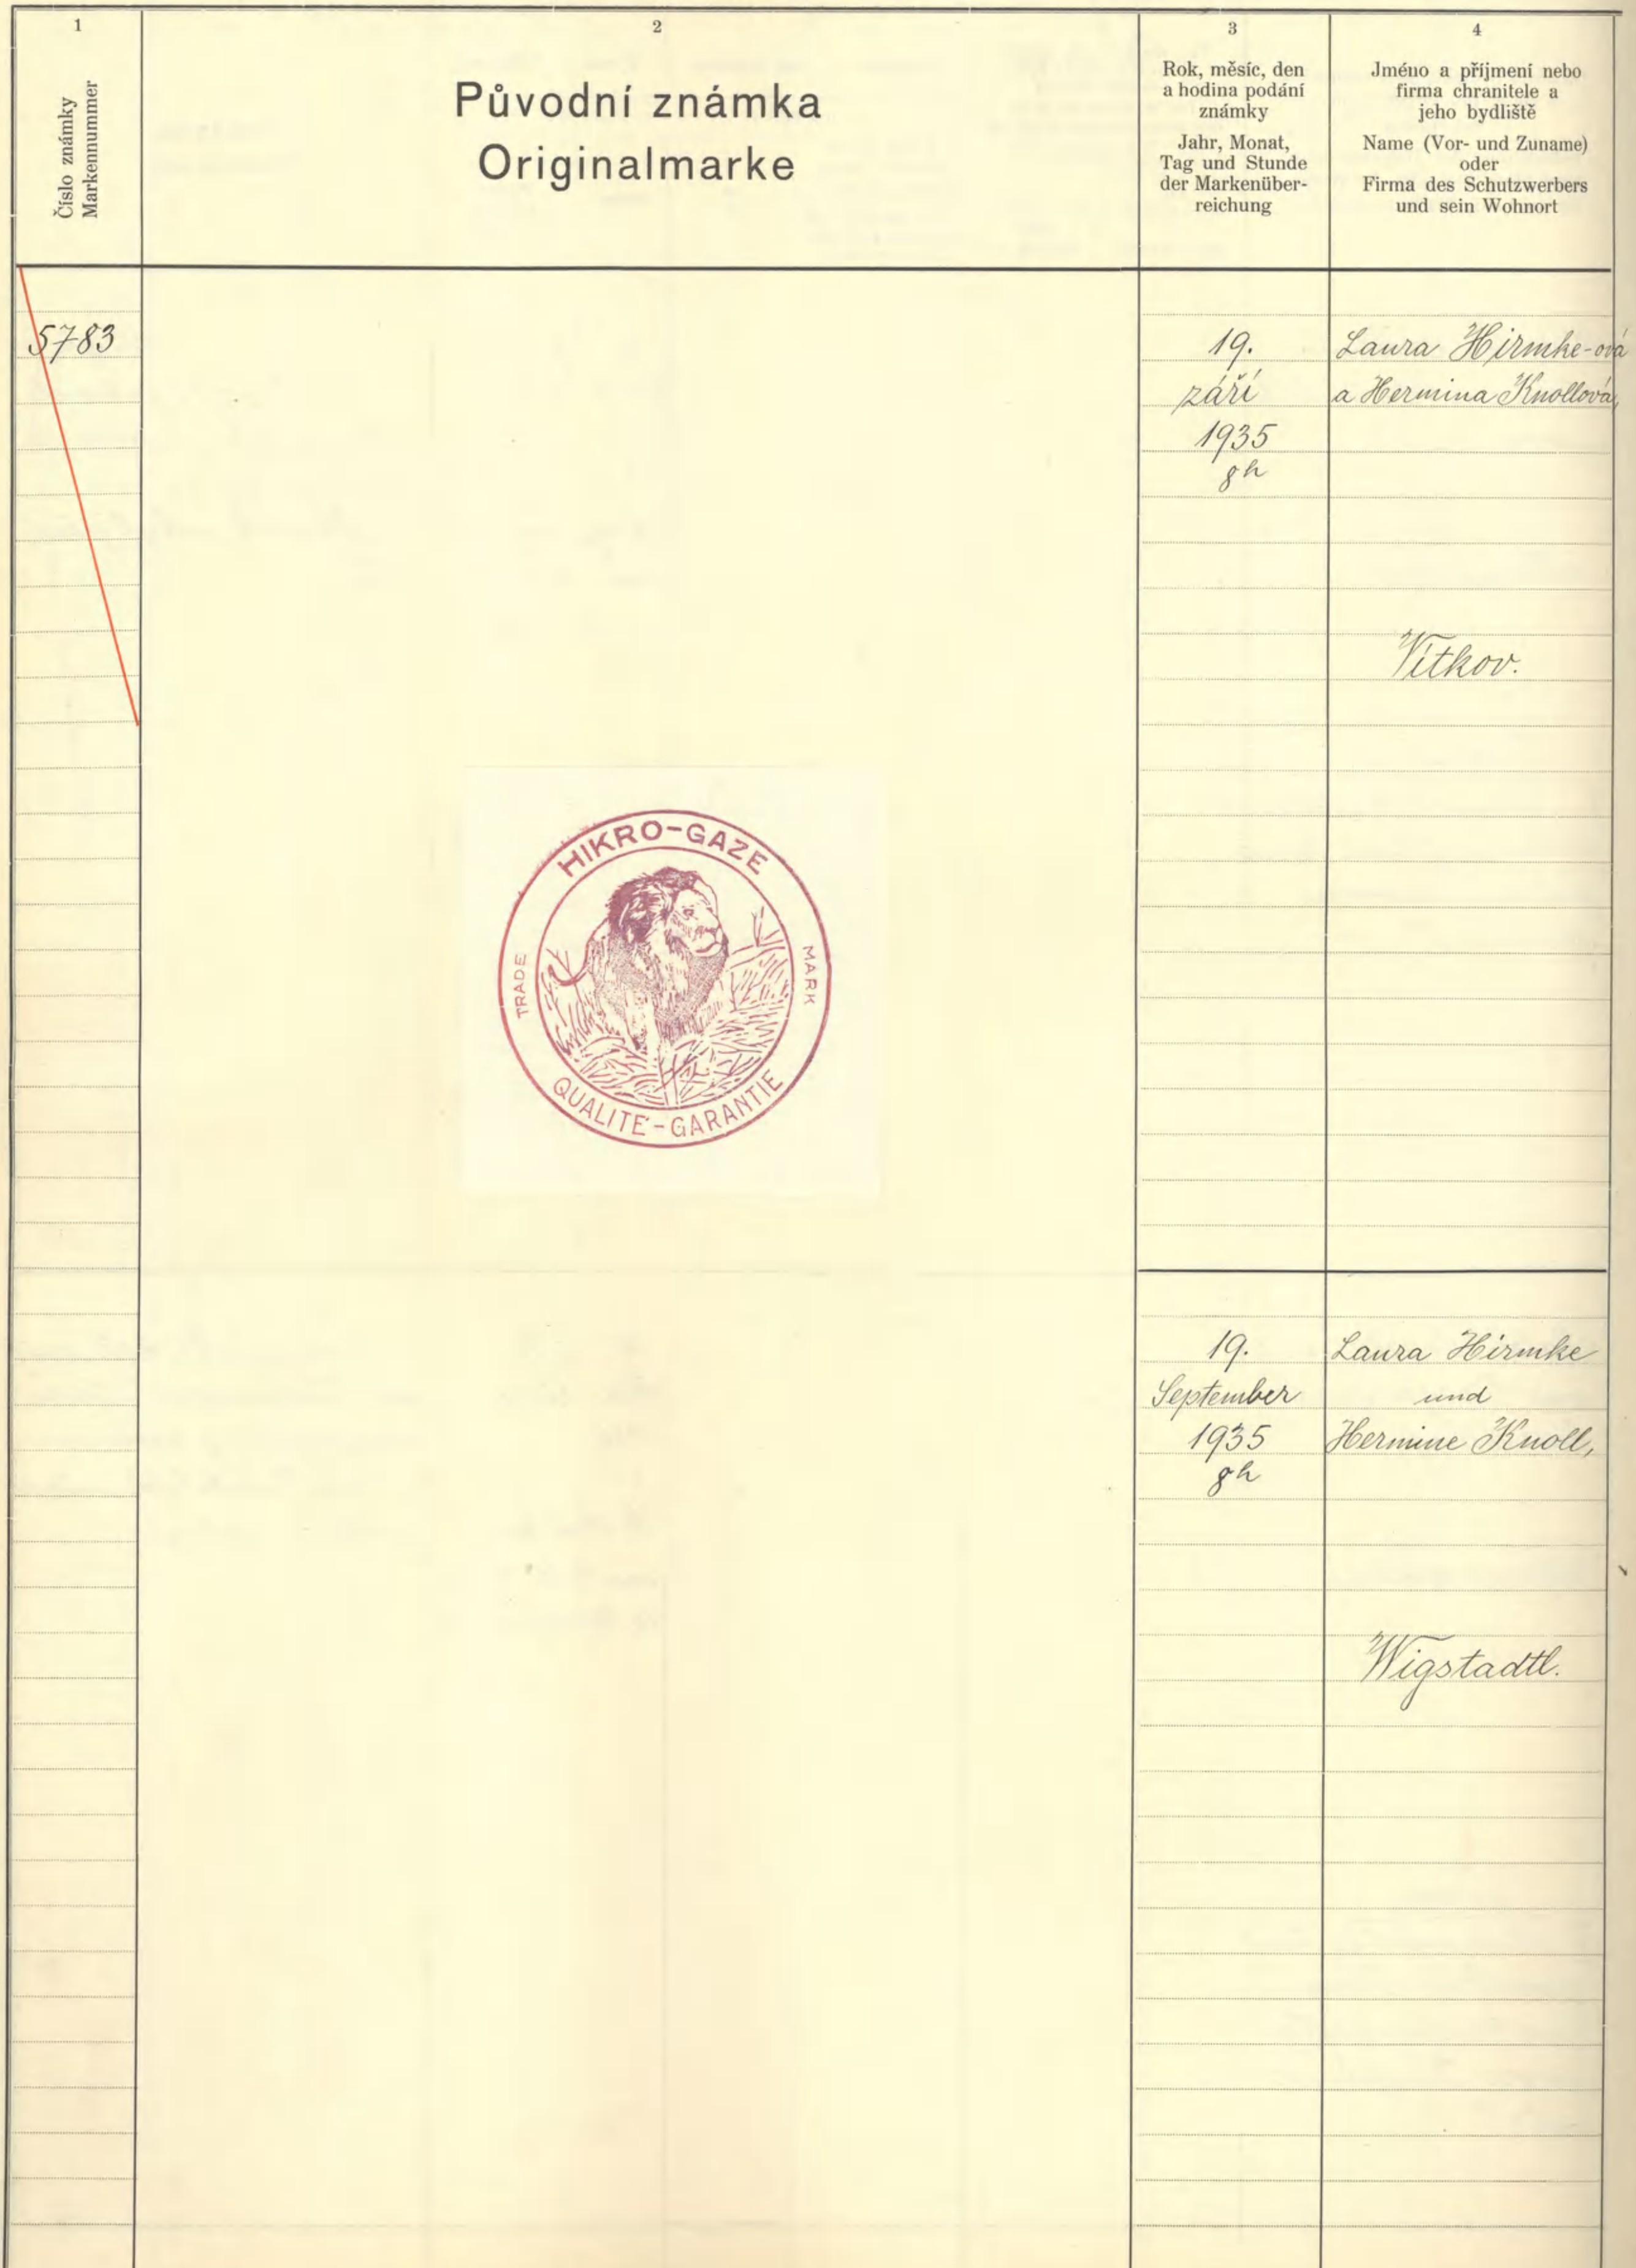 1
Číslo známky
Markennummer
2
Původní známka
Originalmarke
3
Rok, měsíc, den
a hodina podání
známky
Jahr, Monat,
Tag und Stunde
der Markenüber-
reichung
4
Jméno a příjmení nebo
firma chranitele a
jeho bydliště
Name (Vor- und Zuname)
oder
Firma des Schutzwerbers
und sein Wohnort
5783
19.
září
1935
8h
Laura Hirmke-ová
a Hermina Knollová,
Vítkov.
HIKRO-GAZE
TRADE
MARK
QUALITÉ-GARANTIE
19.
September
1935
8h
Laura Hirmke
und
Hermine Knoll,
Wigstadtl.